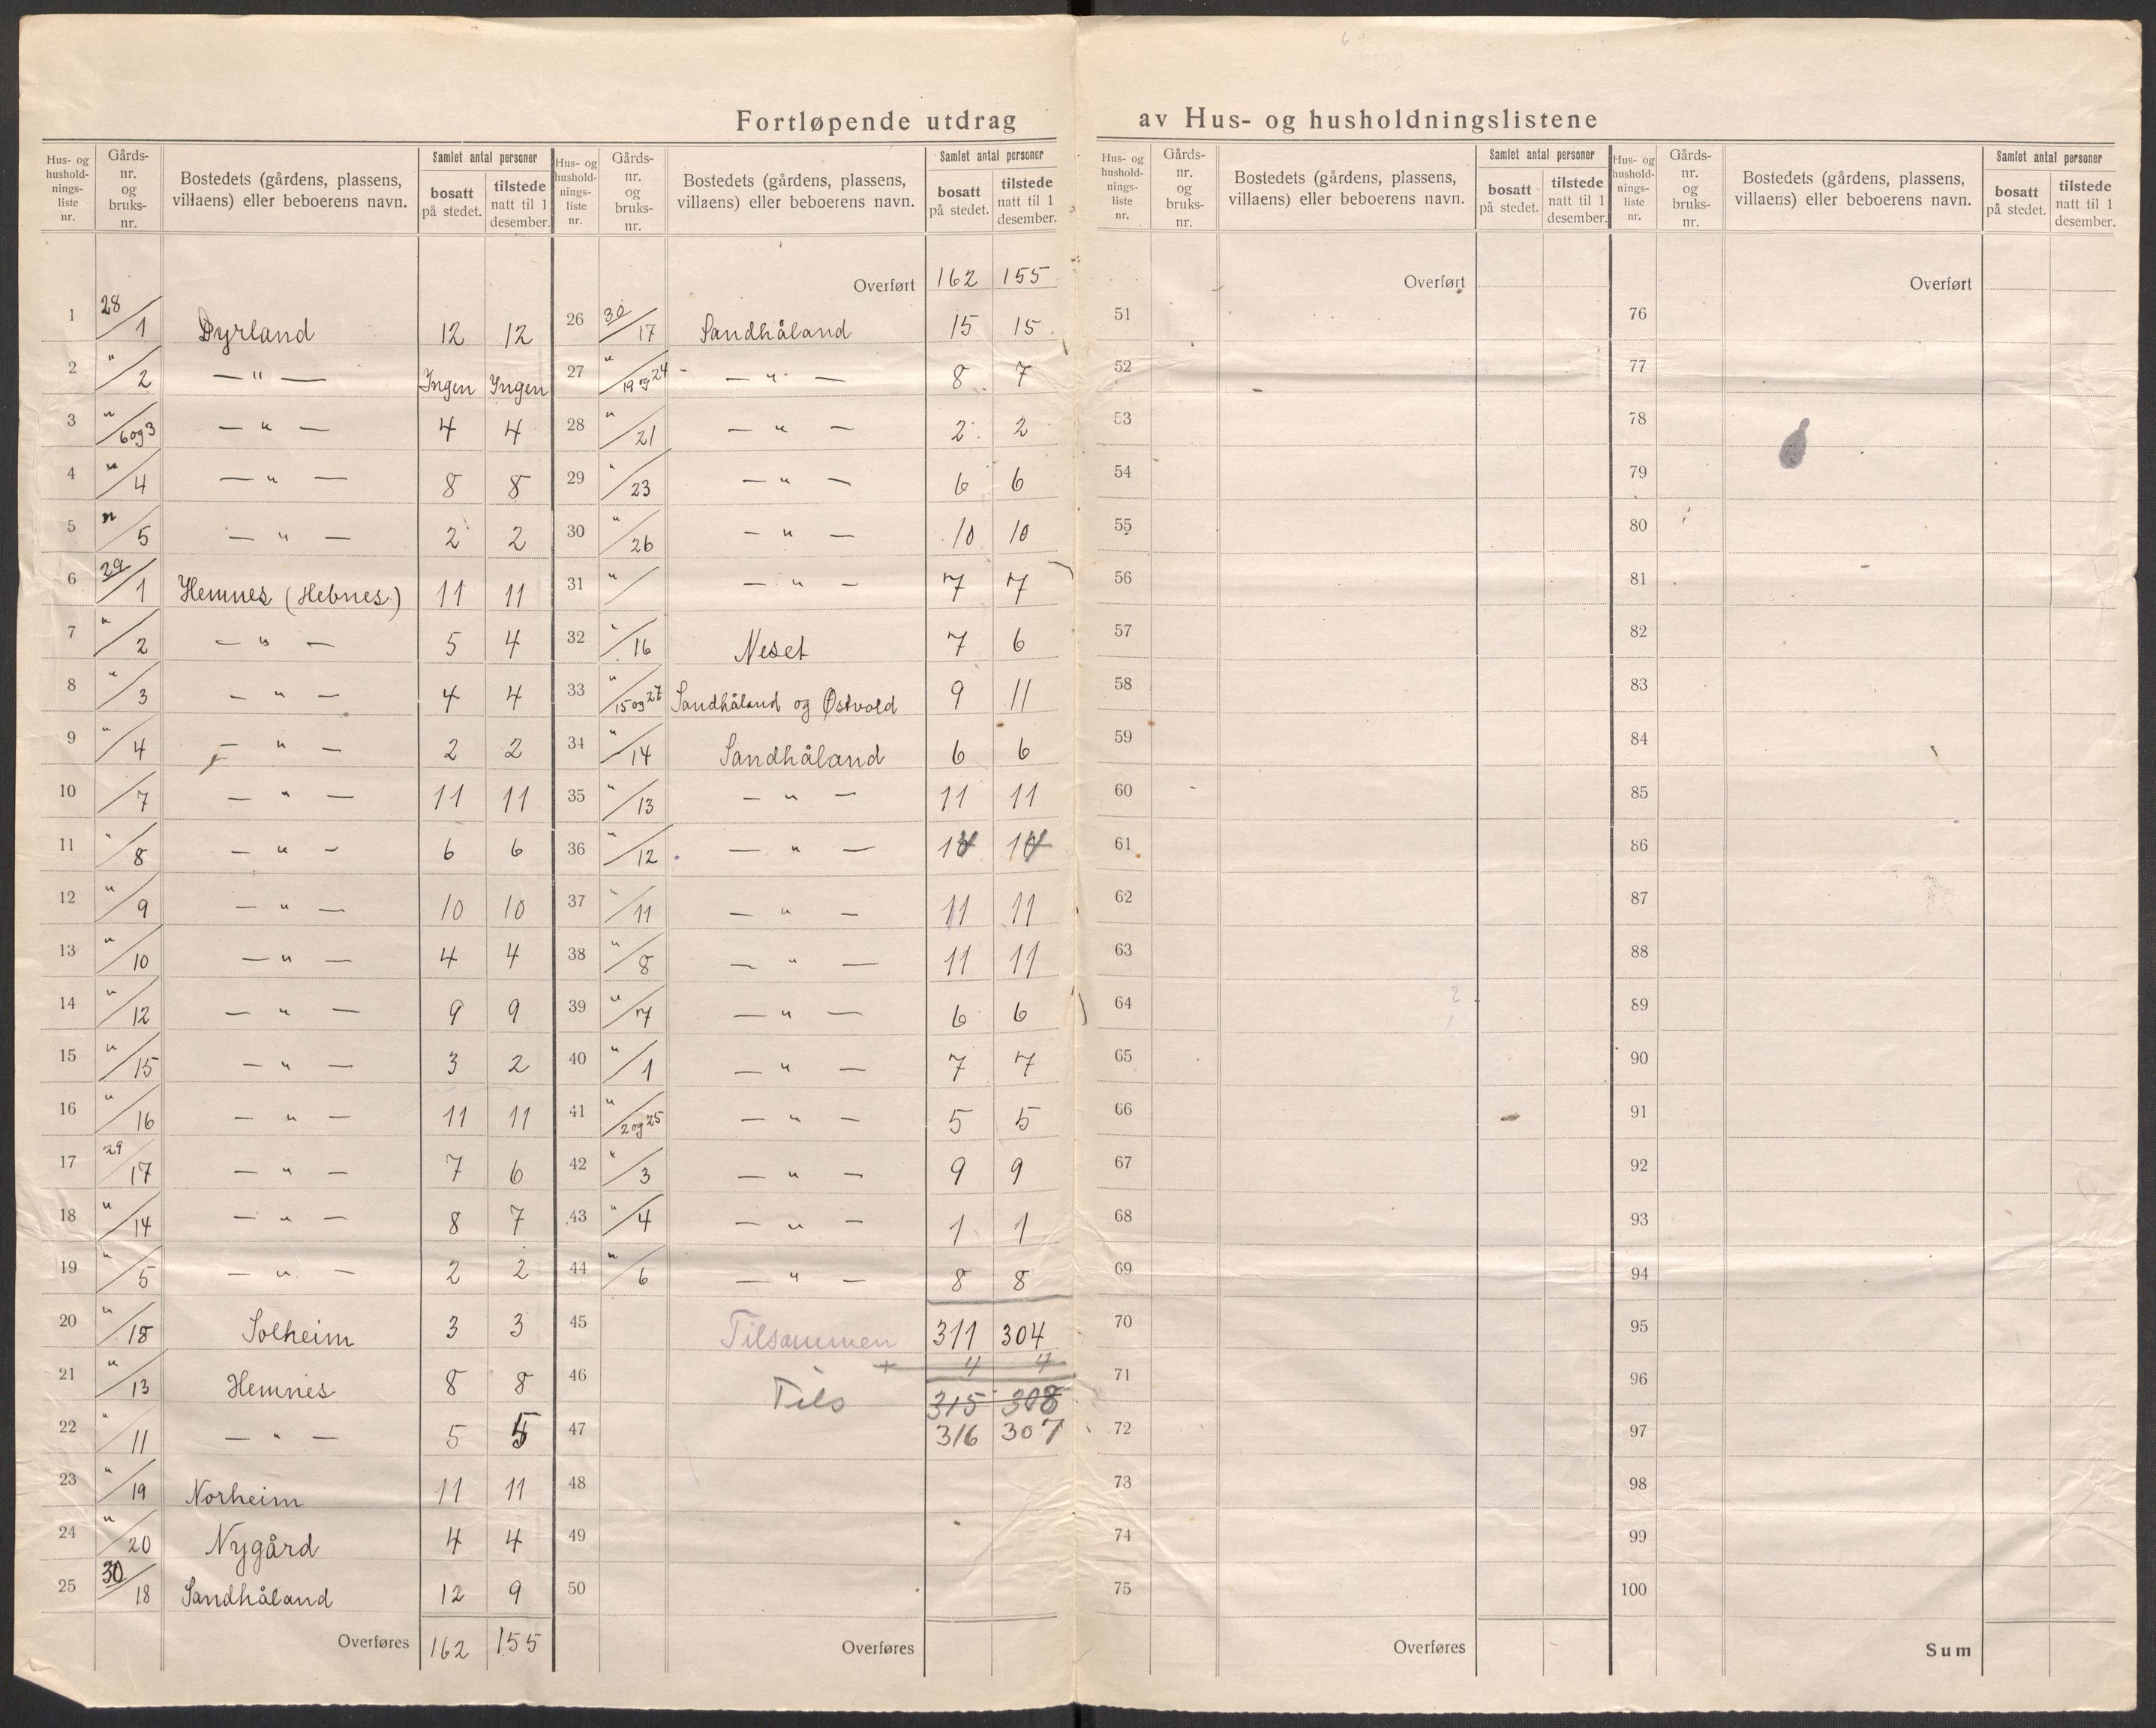 Fortløpende utdrag av Hus- og husholdningslistene
Hus- og hushold-nings-liste nr. | Gårds-nr. og bruks-nr. | Bostedets (gårdens, plassens, villaens) eller beboerens navn. | Samlet antal personer | bosatt på stedet. | tilstede natt til 1 desember.
1 28/1 Dyrland 12 12
2 "/2 — " — Ingen Ingen
3 "/6 og 3 — " — 4 4
4 "/4 — " — 8 8
5 "/5 — " — 2 2
6 29/1 Hemnes (Hebnes) 11 11
7 "/2 — " — 5 4
8 "/3 — " — 4 4
9 "/4 — " — 2 2
10 /7 — " — 11 11
11 "/8 — " — 6 6
12 "/9 — " — 10 10
13 "/10 — " — 4 4
14 "/12 — " — 9 9
15 "/15 — " — 3 2
16 "/16 — " — 11 11
17 29/17 — " — 7 6
18 "/14 — " — 8 7
19 "/5 — " — 2 2
20 "/18 Solheim 3 3
21 "/13 Hemnes 8 8
22 "/11 — " — 5 5
23 "/19 Norheim 11 11
24 "/20 Nygård 4 4
25 30/18 Sandhåland 12 9
Overføres 162 155
Hus- og hushold-nings-liste nr. | Gårds-nr. og bruks-nr. | Bostedets (gårdens, plassens, villaens) eller beboerens navn. | Samlet antal personer | bosatt på stedet. | tilstede natt til 1 desember.
Overført 162 155
26 30/17 Sandhåland 15 15
27 "/19 og 24 — " — 8 7
28 "/21 — " — 2 2
29 "/23 — " — 6 6
30 "/26 — " — 10 10
31 "/ — " — 7 7
32 "/16 Neset 7 6
33 "/15 og 27 Sandhåland og Østvold 9 11
34 "/14 Sandhåland 6 6
35 "/13 — " — 11 11
36 "/12 — " —
37 "/11 — " — 11 11
38 "/8 — " — 11 11
39 "/7 — " — 6 6
40 "/1 — " — 7 7
41 "/2 og 25 — " — 5 5
42 "/3 — " — 9 9
43 "/4 — " — 1 1
44 "/6 — " — 8 8
45 Tilsammen 311 304
+ 4 4
46 Tils 315 308
47 316 307
48
49
50
Overføres
Hus- og hushold-nings-liste nr. | Gårds-nr. og bruks-nr. | Bostedets (gårdens, plassens, villaens) eller beboerens navn. | Samlet antal personer | bosatt på stedet. | tilstede natt til 1 desember.
Overført
51
52
53
54
55
56
57
58
59
60
61
62
63
64
65
66
67
68
69
70
71
72
73
74
75
Overføres
Hus- og hushold-nings-liste nr. | Gårds-nr. og bruks-nr. | Bostedets (gårdens, plassens, villaens) eller beboerens navn. | Samlet antal personer | bosatt på stedet. | tilstede natt til 1 desember.
Overført
76
77
78
79
80
81
82
83
84
85
86
87
88
89
90
91
92
93
94
95
96
97
98
99
100
Sum